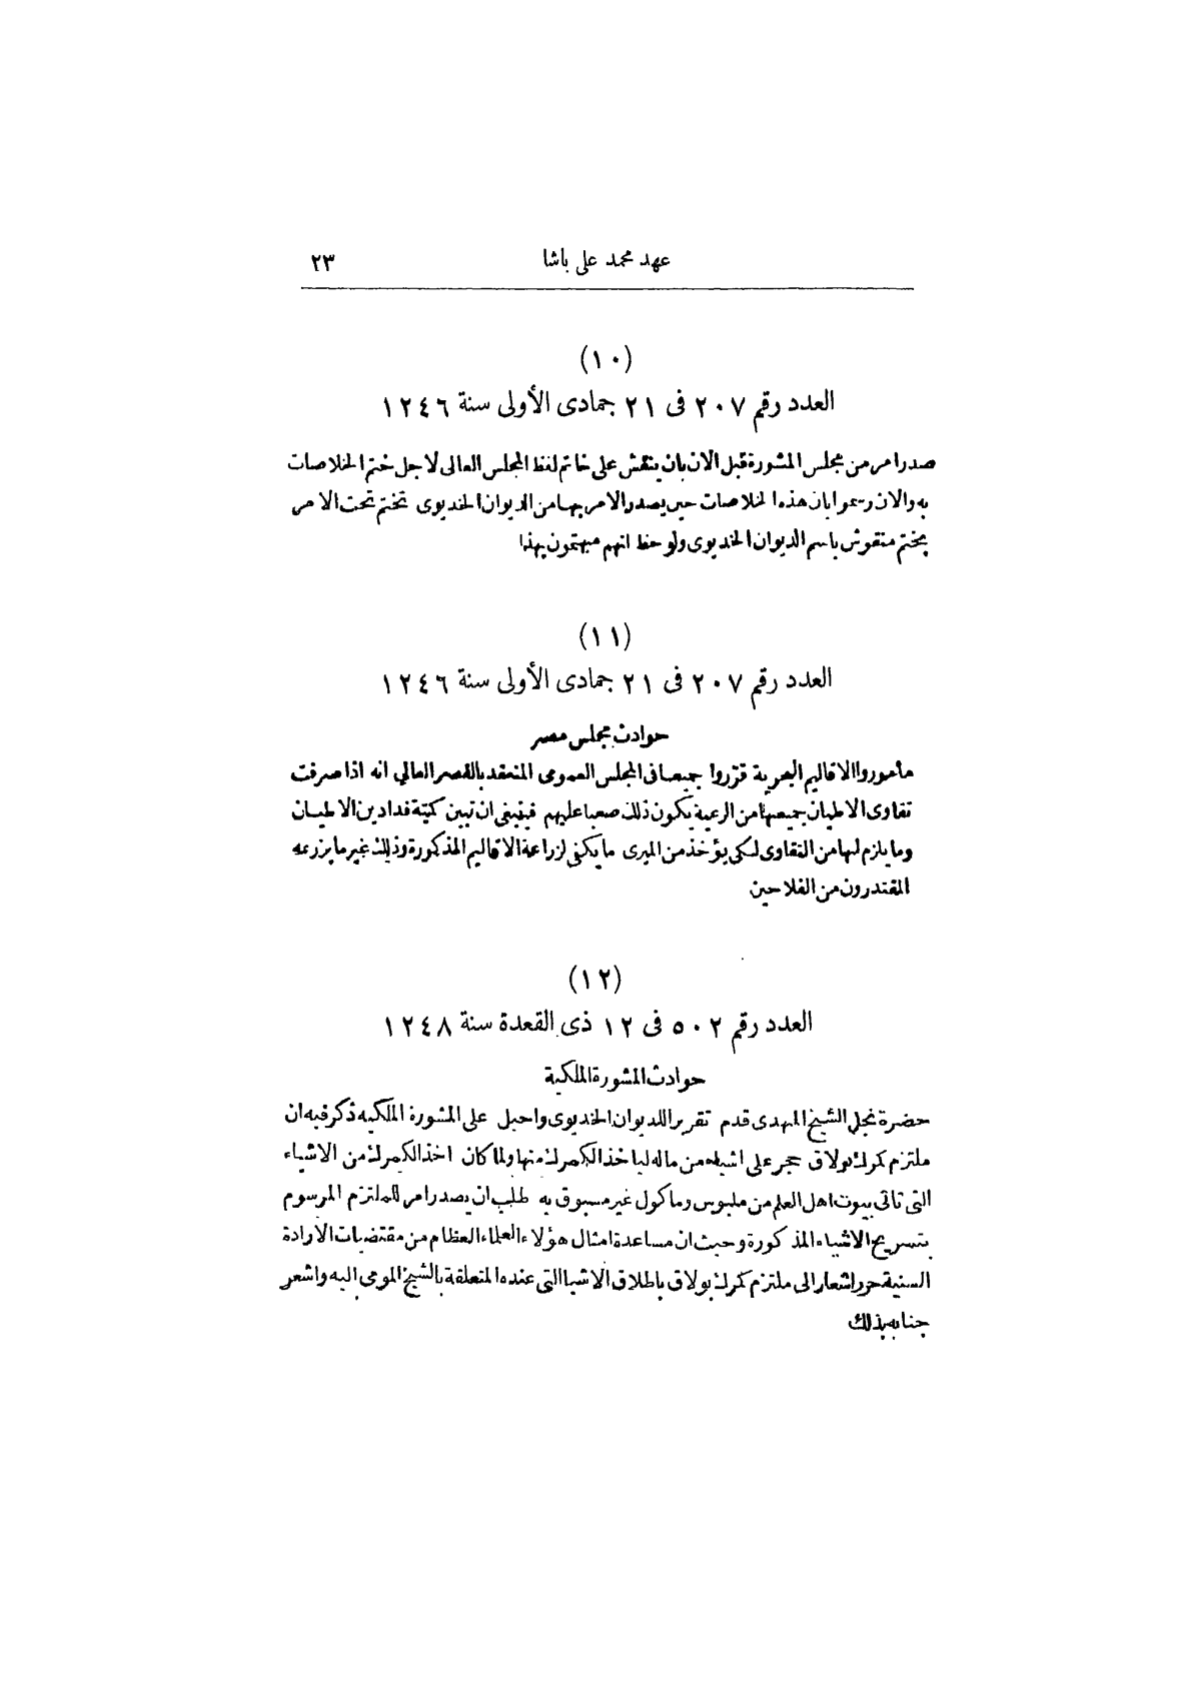 عهد محمد على باشا ٢٣
(١٠)
العدد رقم ٢٠٧ فى ٢١ جمادى الأولى سنة ١٢٤٦
صدر امر من مجلس المشورة قبل الان بان ينقش على خاتم لفظ المجلس العالى لاجل ختم الخلاصات
به والان رسموا بان هذه الخلاصات حين يصدر الامر بها من الديوان الخديوى تختم تحت الامر
بختم منقوش باسم الديوان الخديوى ولوحظ انهم مهتمون بهذا
(١١)
العدد رقم ٢٠٧ فى ٢١ جمادى الأولى سنة ١٢٤٦
حوادث مجلس مصر
مأموروا الاقاليم البحرية قرّروا جميعا فى المجلس العمومى المنعقد بالقصر العالي انه اذا صرفت
تقاوى الاطيان جميعها من الرعية يكون ذلك صعبا عليهم فينبغى ان تبين كيّة فدادين الاطيان
وما يلزم لها من التقاوى لكى يؤخذ من الميرى ما يكفى لزراعة الاقاليم المذكورة وذلك غير ما يزرعه
المقتدرون من الفلاحين
(١٢)
العدد رقم ٥٠٢ فى ١٢ ذى القعدة سنة ١٢٤٨
حوادث المشورة الملكية
حضرة نجل الشيخ المهدى قدم تقريرا للديوان الخديوى واحيل على المشورة الملكيه ذكر فيه ان
ملتزم كمرك بولاق حجر على اشياه من ماله لياخذ الكمرك منها ولما كان اخذ الكمرك من الاشياء
التى تاتى بيوت اهل العلم من ملبوس وماكول غير مسبوق به طلب ان يصدر امر للملتزم المرسوم
بتسريح الاشياء المذكورة وحيث ان مساعدة امثال هؤلاء العلماء العظام من مقتضيات الارادة
السنية حرر اشعار الى ملتزم كمرك بولاق باطلاق الاشيا التى عنده المتعلقة بالشيخ المومى اليه واشعر
جنابه بذلك